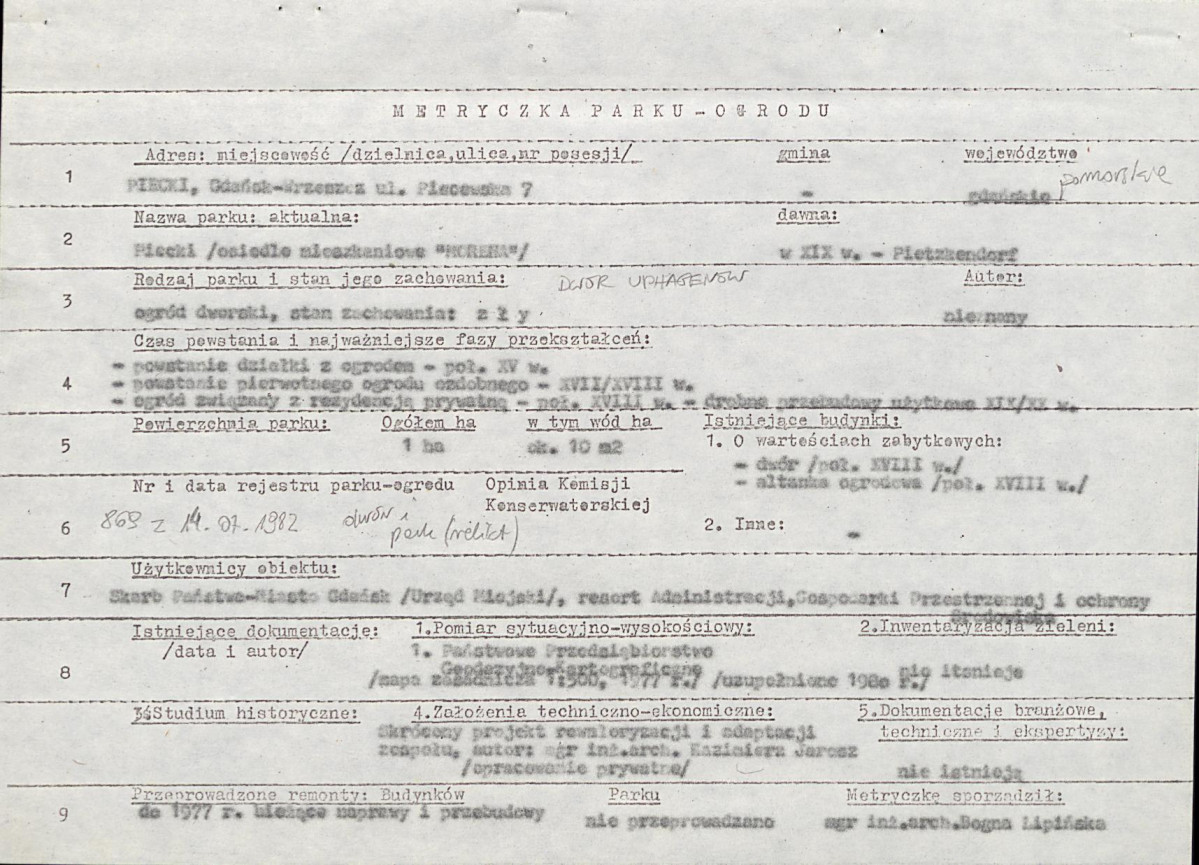 METRYCZKA PARKU-OGRODU
1 Adres: miejscowość /dzielnica,ulica,nr posesji/ gmina województwo
PIECKI, Gdańsk-Wrzeszcz ul. Piecewska 7 - gdańskie pomorskie
2 Nazwa parku: aktualna: dawna:
Piecki /osiedle mieszkaniowe "MORENA"/ w XIX w. - Pietzkendorf
3 Rodzaj parku i stan jego zachowania: DWÓR UPHAGENÓW Autor:
ogród dworski, stan zachowania: z ł y nieznany
4 Czas powstania i najważniejsze fazy przekształceń:
- powstanie działki z ogrodem - poł. XV w.
- powstanie pierwotnego ogrodu ozdobnego - XVII/XVIII w.
- ogród związany z rezydencją prywatną - poł. XVIII w. - drobne przebudowy użytkowe XIX/XX w.
5 Powierzchnia parku: Ogółem ha w tym wód ha Istniejące budynki:
1 ha ok. 10 m2 1. O wartościach zabytkowych:
- dwór /poł. XVIII w./
- altanka ogrodowa /poł. XVIII w./
6 Nr i data rejestru parku-ogrodu Opinia Komisji
Konserwatorskiej
869 z 14.07.1982 dwór i
park (relikt)
2. Inne: -
7 Użytkownicy obiektu:
Skarb Państwa-Miasto Gdańsk /Urząd Miejski/, resort Administracji,Gospodarki Przestrzennej i ochrony
środowiska
8 Istniejące dokumentacje: 1.Pomiar sytuacyjno-wysokościowy: 2.Inwentaryzacja zieleni:
/data i autor/ 1. Państwowe Przedsiębiorstwo
Geodezyjno-Kartograficzne
/mapa zasadnicza 1:500, 1977 r./ /uzupełnione 1980 r./ nie itsnieje
3.Studium historyczne: 4.Założenia techniczno-ekonomiczne: 5.Dokumentacje branżowe,
techniczne i ekspertyzy:
Skrócony projekt rewaloryzacji i adaptacji
zespołu, autor: mgr inż.arch. Kazimierz Jarosz
/opracowanie prywatne/ nie istnieją
9 Przeprowadzone remonty: Budynków Parku Metryczkę sporządził:
do 1977 r. bieżące naprawy i przebudowy nie przeprowadzano mgr inż.arch.Bogna Lipińska